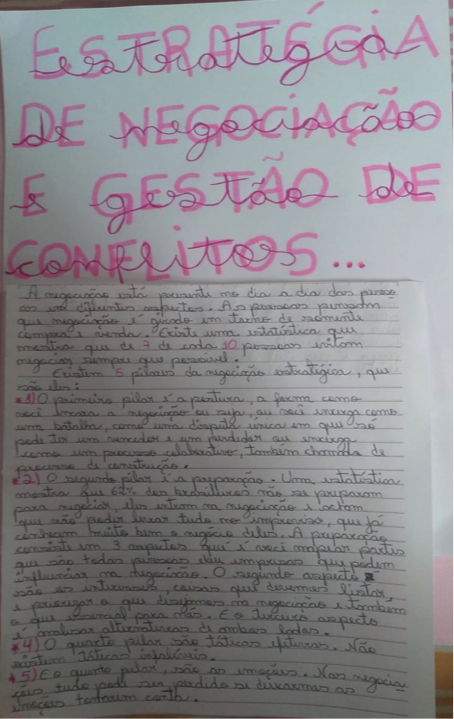 ESTRATÉGIA
DE NEGOCIAÇÃO
E GESTÃO DE
CONFLITOS...
A negociação está presente no dia a dia das pesso
as em diferentes aspectos. As pessoas pensam
que negociação é girado em torno de somente
compra e venda. Existe uma estatística que
mostra que de 7 de cada 10 pessoas evitam
negociar sempre que possível.
Existem 5 pilares da negociação estratégica, que
são eles:
*1) O primeiro pilar é a postura, a forma como
você encara a negociação ou seja, ou você enxerga como
uma batalha, como uma disputa única em que só
pode ter um vencedor e um perdedor ou enxerga
como um processo colaborativo, também chamada de
processo de construção.
*2) O segundo pilar é a preparação. Uma estatística
mostra que 62% dos brasileiros não se preparam
para negociar, eles entram na negociação e acham
que vão poder levar tudo no improviso, que já
conhecem muito bem o negócio deles. A preparação
consiste em 3 aspectos que é você mapear partes
que são todas pessoas ou empresas que podem
influenciar na negociação. O segundo aspecto
são os interesses, coisas que devemos listar,
e priorizar o que desejamos na negociação e também
o que essencial para nós. E o terceiro aspecto
é analisar alternativas de ambos lados.
*4) O quarto pilar são táticas efetivas. Não
existem táticas infalíveis.
*5) E o quinto pilar, são as emoções. Nas negocia
ções tudo pode ser perdido se deixarmos as
emoções tomarem conta.